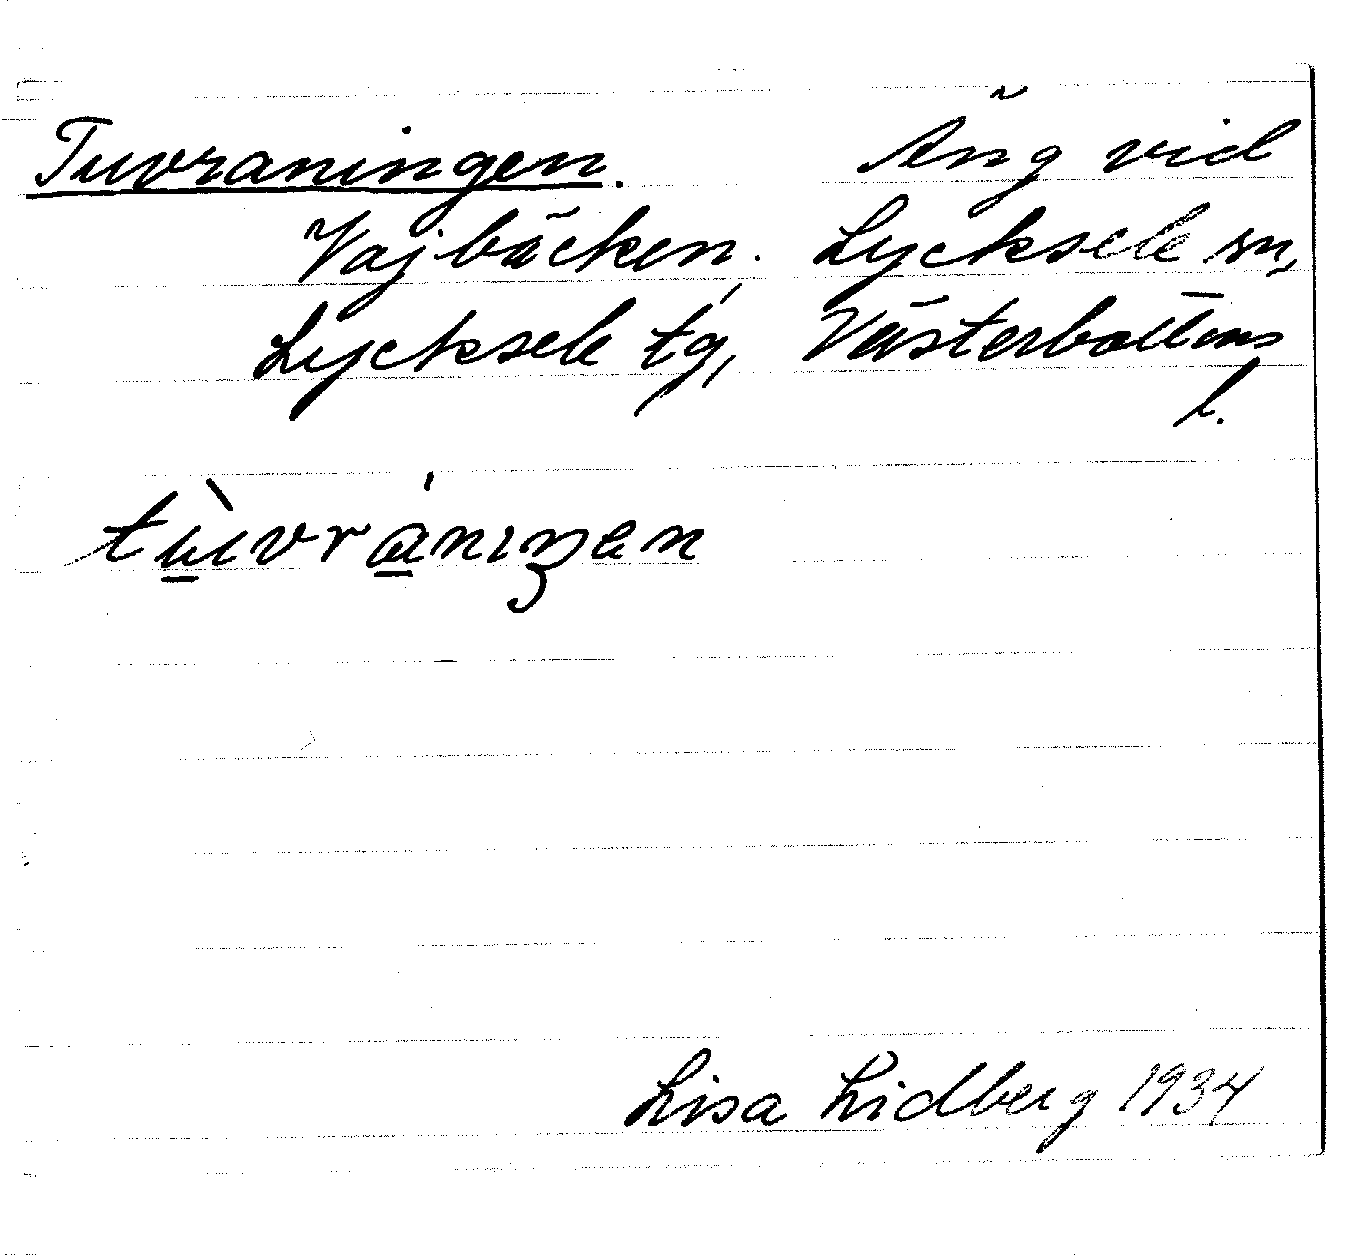 Tuvraningen. Äng vid
Vajbäcken. Lycksele sn,
Lycksele tg, Västerbottens
l.
tùvránıŋen
Lisa Lidberg 1934